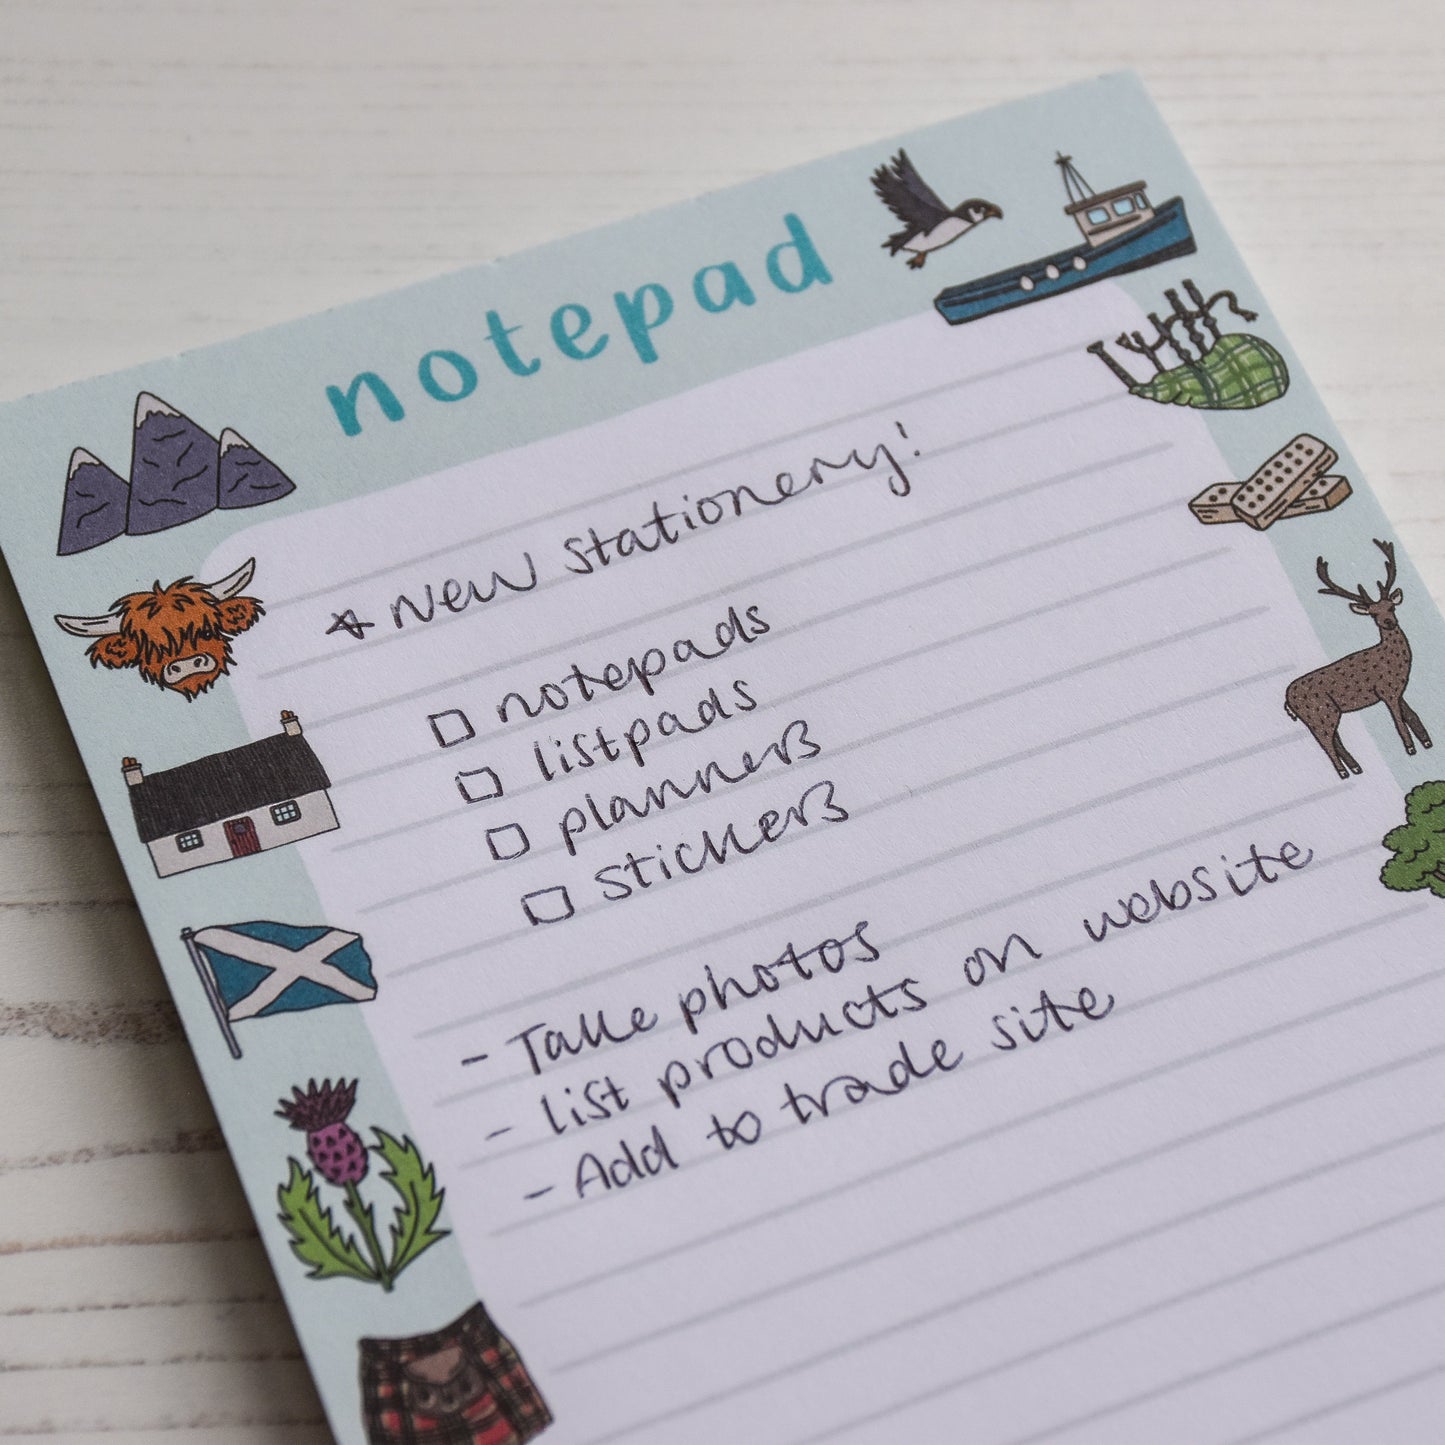 notepad
* New stationery!
☐ notepads
☐ listpads
☐ planners
☐ stickers
- Take photos
- list products on website
- Add to trade site